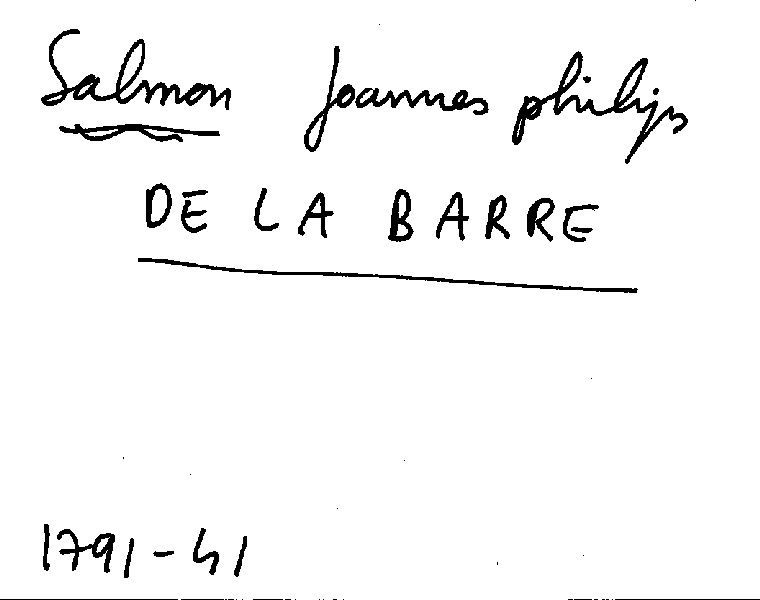 Salmon Joannes philips
DE LA BARRE
1791-41